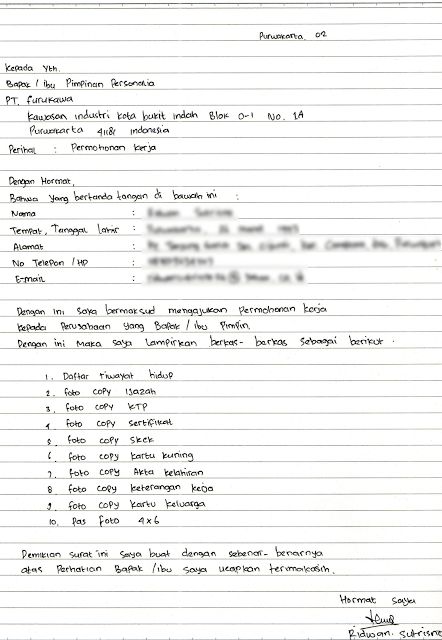 Purwakarta, 02
Kepada Yth.
Bapak / Ibu Pimpinan Personalia
PT. Furukawa
Kawasan industri Kota bukit indah Blok D-1 No. 2A
Purwakarta 41181 Indonesia
Perihal : Permohonan Kerja
Dengan Hormat,
Bahwa yang bertanda tangan di bawah ini :
Nama :
Tempat, Tanggal Lahir :
Alamat :
No Telepon / HP :
E-mail :
Dengan ini saya bermaksud mengajukan permohonan kerja
kepada Perusahaan yang Bapak / Ibu Pimpin.
Dengan ini Maka saya lampirkan berkas- berkas sebagai berikut :
1. Daftar riwayat hidup
2. foto copy Ijazah
3. foto copy KTP
4 foto copy sertifikat
5. foto copy skck
6 foto copy kartu kuning
7. foto copy Akta kelahiran
8 foto copy keterangan kerja
9. foto copy kartu keluarga
10. Pas foto 4x6
Demikian surat ini saya buat dengan sebenar- benarnya
atas Perhatian Bapak / Ibu saya ucapkan terimakasih.
Hormat saya
Ridwan. Sutrisno